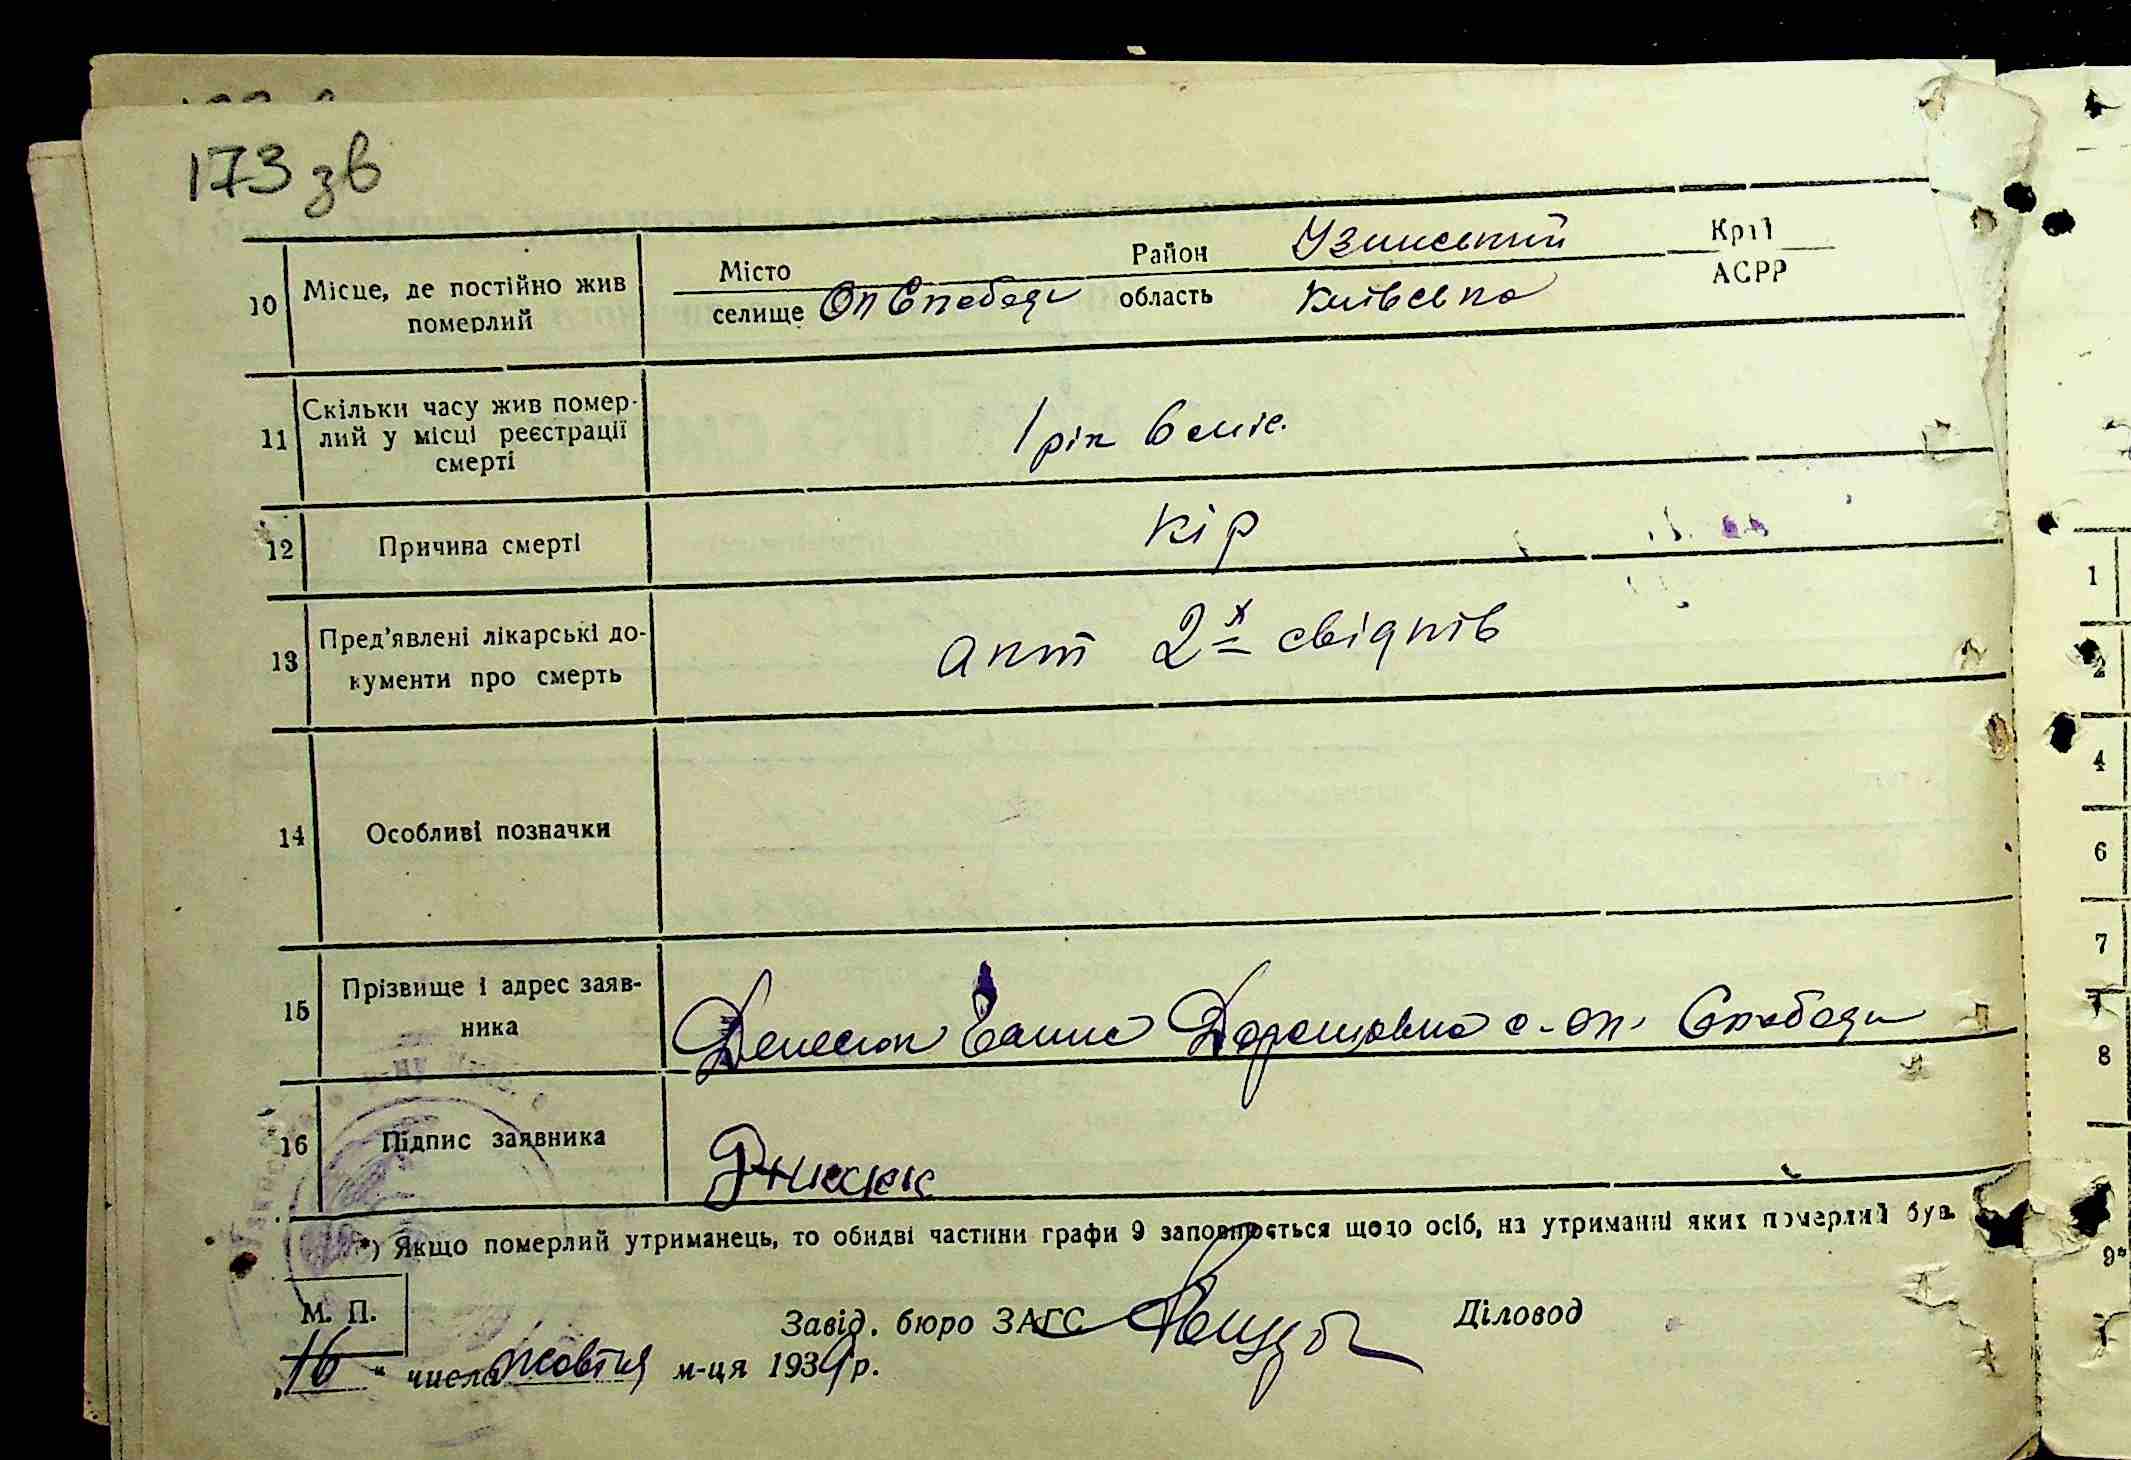 173 зв
10 Місце, де постійно жив померлий Місто селище Оп Слободи Район Узинський область Київська Край АСРР
11 Скільки часу жив помер-
лий у місці реєстрації
смерті
1 рік 6 міс.
12 Причина смерті кір
13 Пред'явлені лікарські до-
кументи про смерть
акт 2х свідків
14 Особливі позначки
15 Прізвище і адрес заяв-
ника
Денесюк Ганна с. Оп. Слободи
16 Підпис заявника
*) Якщо померлий утриманець, то обидві частини графи 9 заповнюється щодо осіб, на утриманні яких померлий був.
М. П.
Завід. бюро ЗАГС Діловод
„16" числа жовтня м-ця 1939 р.
1
2
4
6
7
8
9*